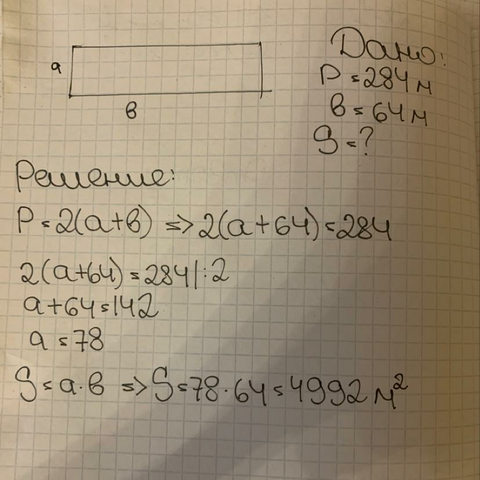 a
в
Дано:
P = 284 м
в = 64 м
S = ?
Решение:
P = 2(a+в) => 2(a+64) = 284
2(a+64) = 284 |:2
a+64 = 142
a = 78
S = a·в => S = 78·64 = 4992 м²